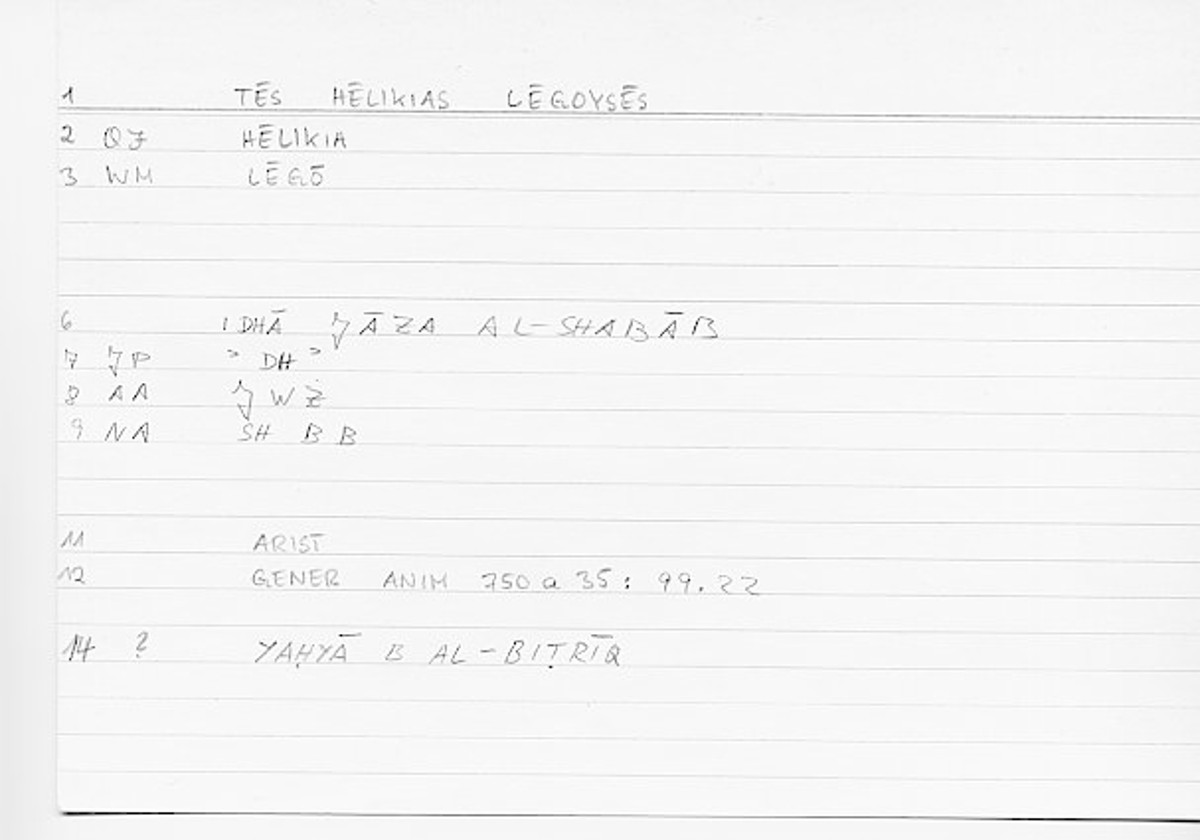 1 TĒS HĒLIKIAS LĒGOYSĒS
2 QJ HĒLIKIA
3 WM LĒGŌ
6 IDHĀ JĀZA AL-SHABĀB
7 JP ʾ DH ʾ
8 AA J W Ż
9 NA SH B B
11 ARIST
12 GENER ANIM 750 a 35 : 99.22
14 ? YAḤYĀ B AL-BIṬRĪQ